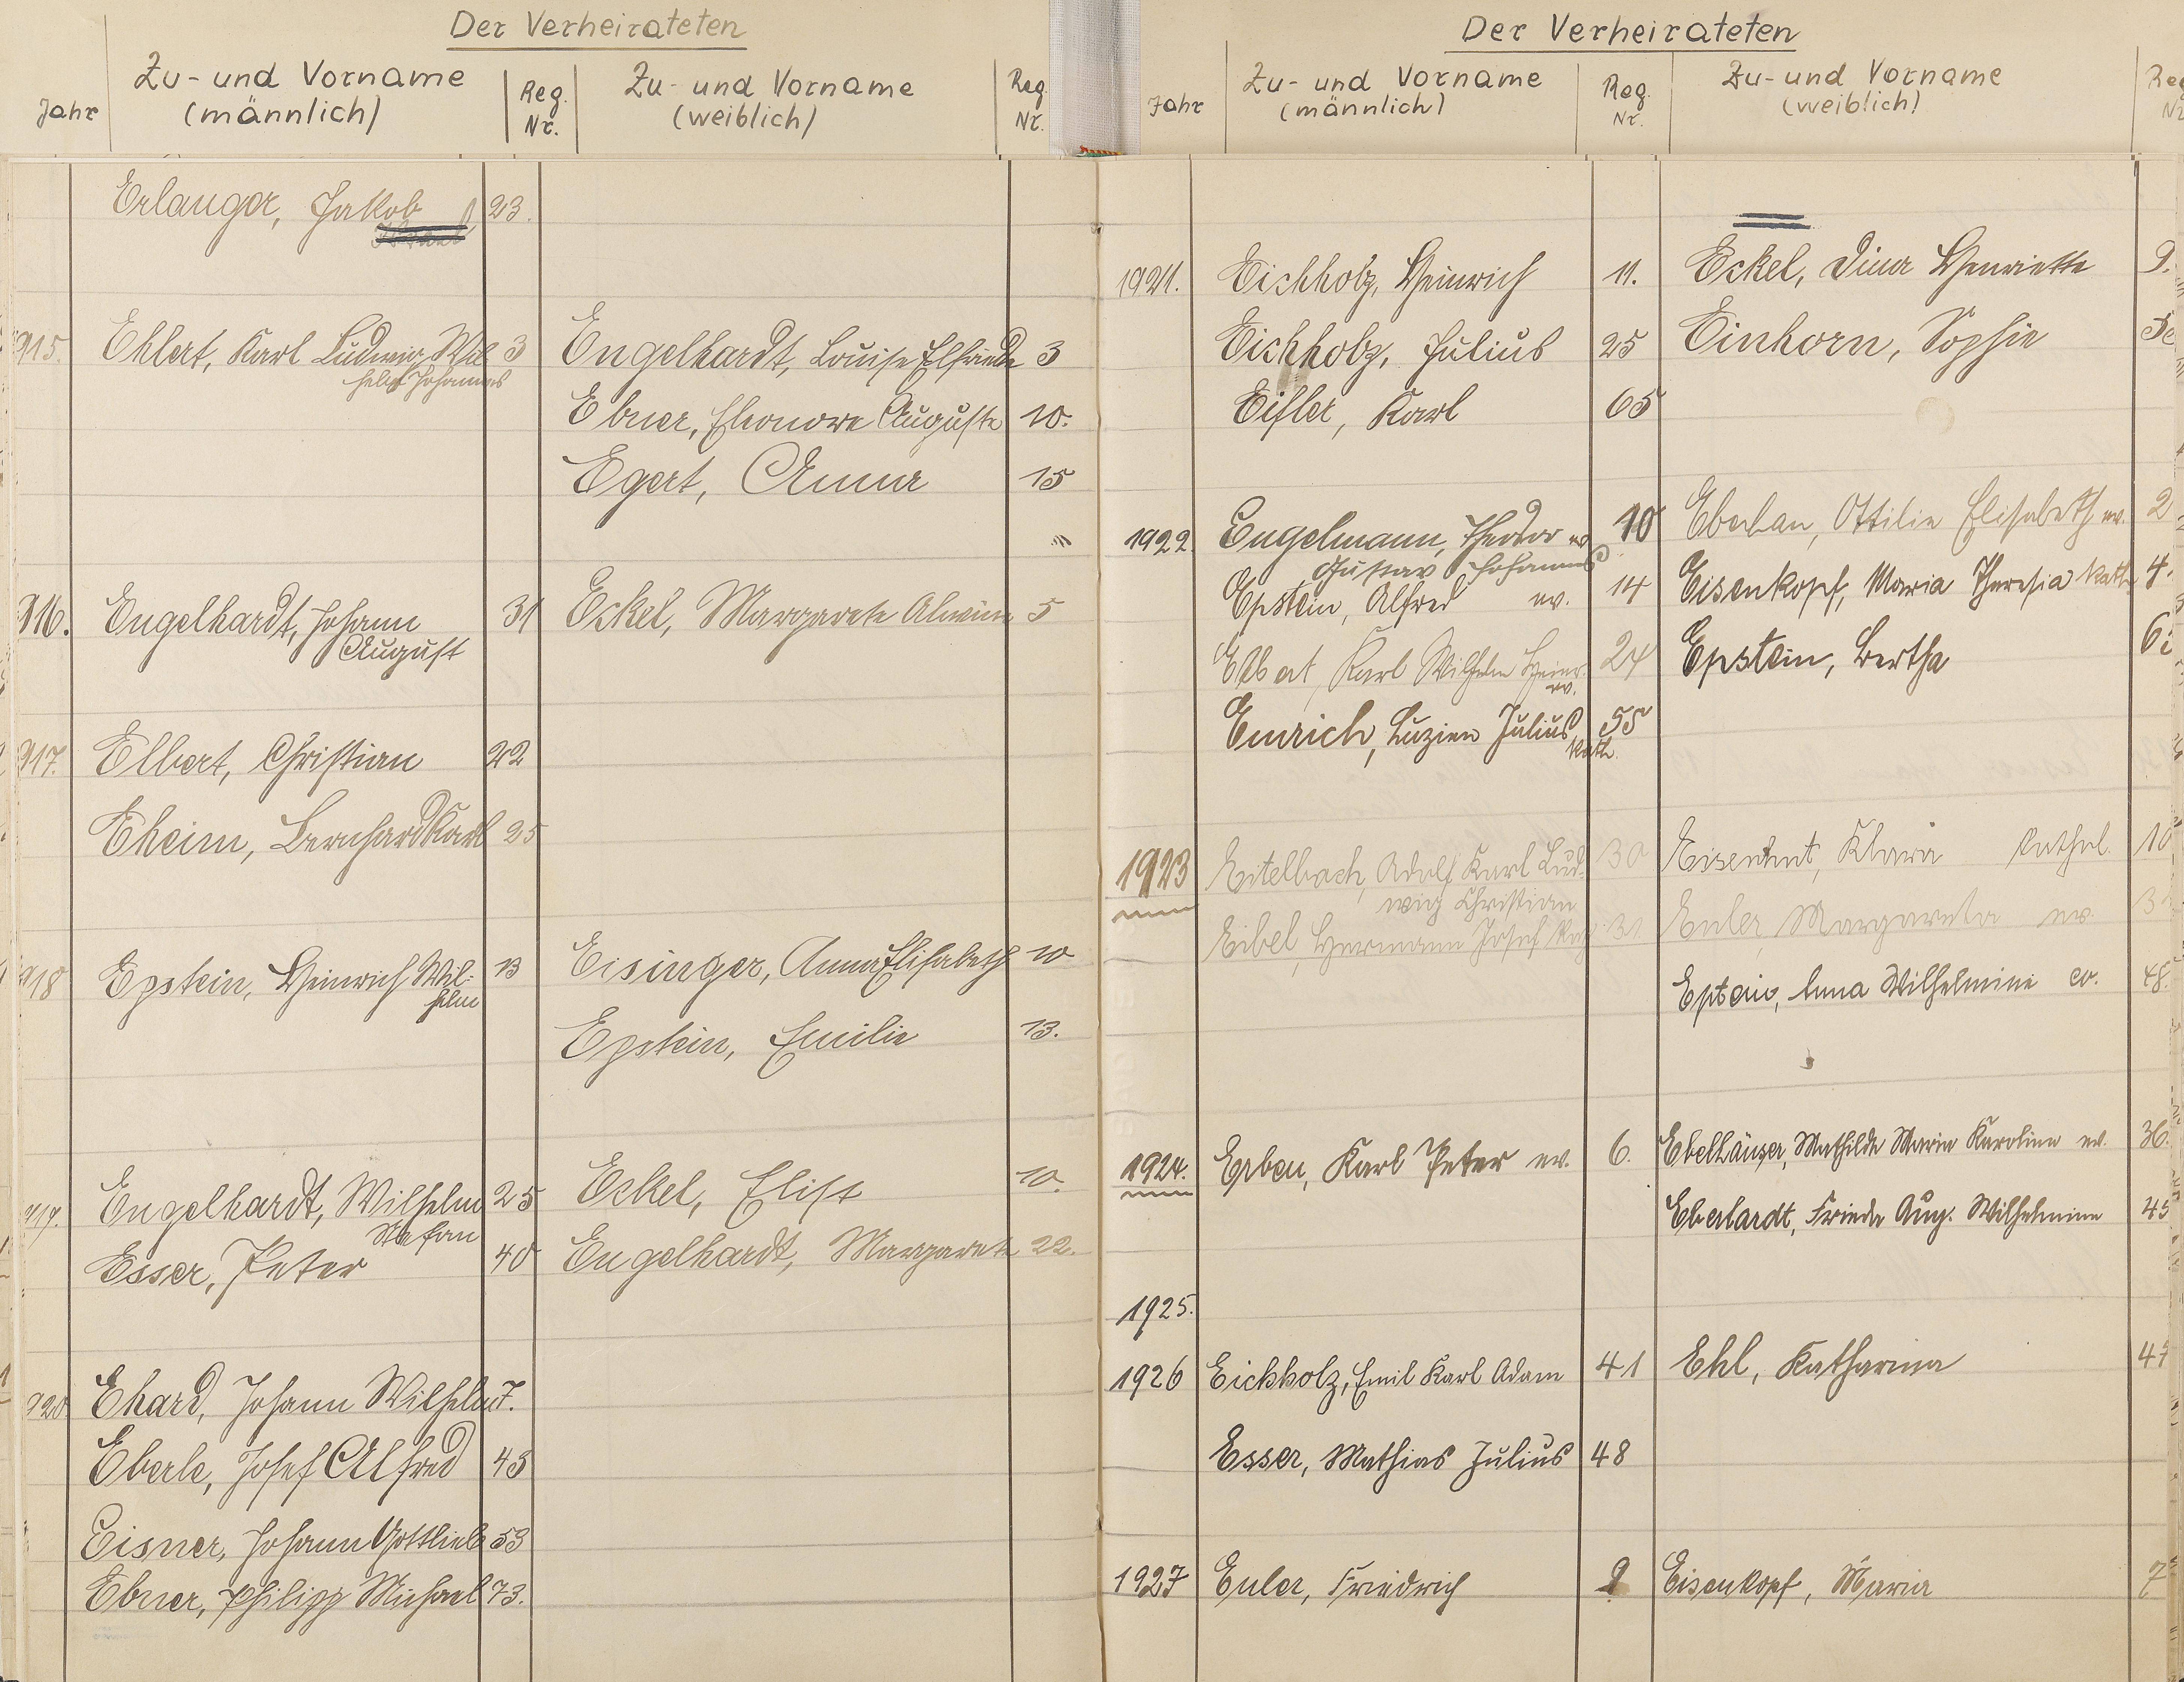 Der Verheirateten
Jahr Zu- und Vorname (männlich) Reg. Nr. Zu- und Vorname (weiblich) Reg. Nr.
Erlanger, Jakob 23.
915. Ehlert, Karl Ludwig Wil 3 Engelhardt, Louise Elfriede 3
helm Johannes
Ebner, Eleonore Auguste 10.
Egert, Anna 15
916. Engelhardt, Johann 31 Eckel, Margarete Alwine 5
August
917. Elbert, Christian 22
Eheim, Bernhard Karl 25
918 Epstein, Heinrich Wil- 13 Eisinger, Anna Elisabeth 10
helm
Epstein, Emilie 13.
919. Engelhardt, Wilhelm 25 Eckel, Elise 10.
Stefan
Esser, Peter 40 Engelhardt, Margarete 22.
920 Ehard, Johann Wilhelm 7.
Eberle, Josef Alfred 43
Eisner, Johann Gottlieb 53
Ebner, Philipp Michael 73.
Der Verheirateten
Jahr Zu- und Vorname (männlich) Reg. Nr. Zu- und Vorname (weiblich) Reg Nr
1921. Eichholz, Heinrich 11. Eckel, Dina Henriette 9.
Eichholz, Julius 25 Einhorn, Sophie
Eifler, Karl 65
1922. Engelmann, Theodor ev 10 Eberhan, Ottilie Elisabeth ev. 2
Gustav Johannes
Epstein, Alfred ev. 14 Eisenkopf, Maria Theresia kath. 4.
Elbert, Karl Wilhelm Heinr. 24 Epstein, Bertha
ev.
Emrich, Luzien Julius 55
kath.
1923 Eitelbach, Adolf Karl Lud- 30 Eisenhut, Klara kathol. 10
wig Christian
Eibel, Hermann Josef 31 Euler, Margareta ev.
Eptein, Anna Wilhelmine ev. 48.
1924. Erben, Karl Peter ev. 6. Ebelhäuser, Mathilde Maria Karoline ev. 36.
Eberhardt, Frieda Aug. Wilhelmine 45
1925.
1926 Eichholz, Emil Karl Adam 41 Ehl, Katharina
Esser, Mathias Julius 48
1927 Euler, Friedrich 9 Eisenkopf, Maria 7